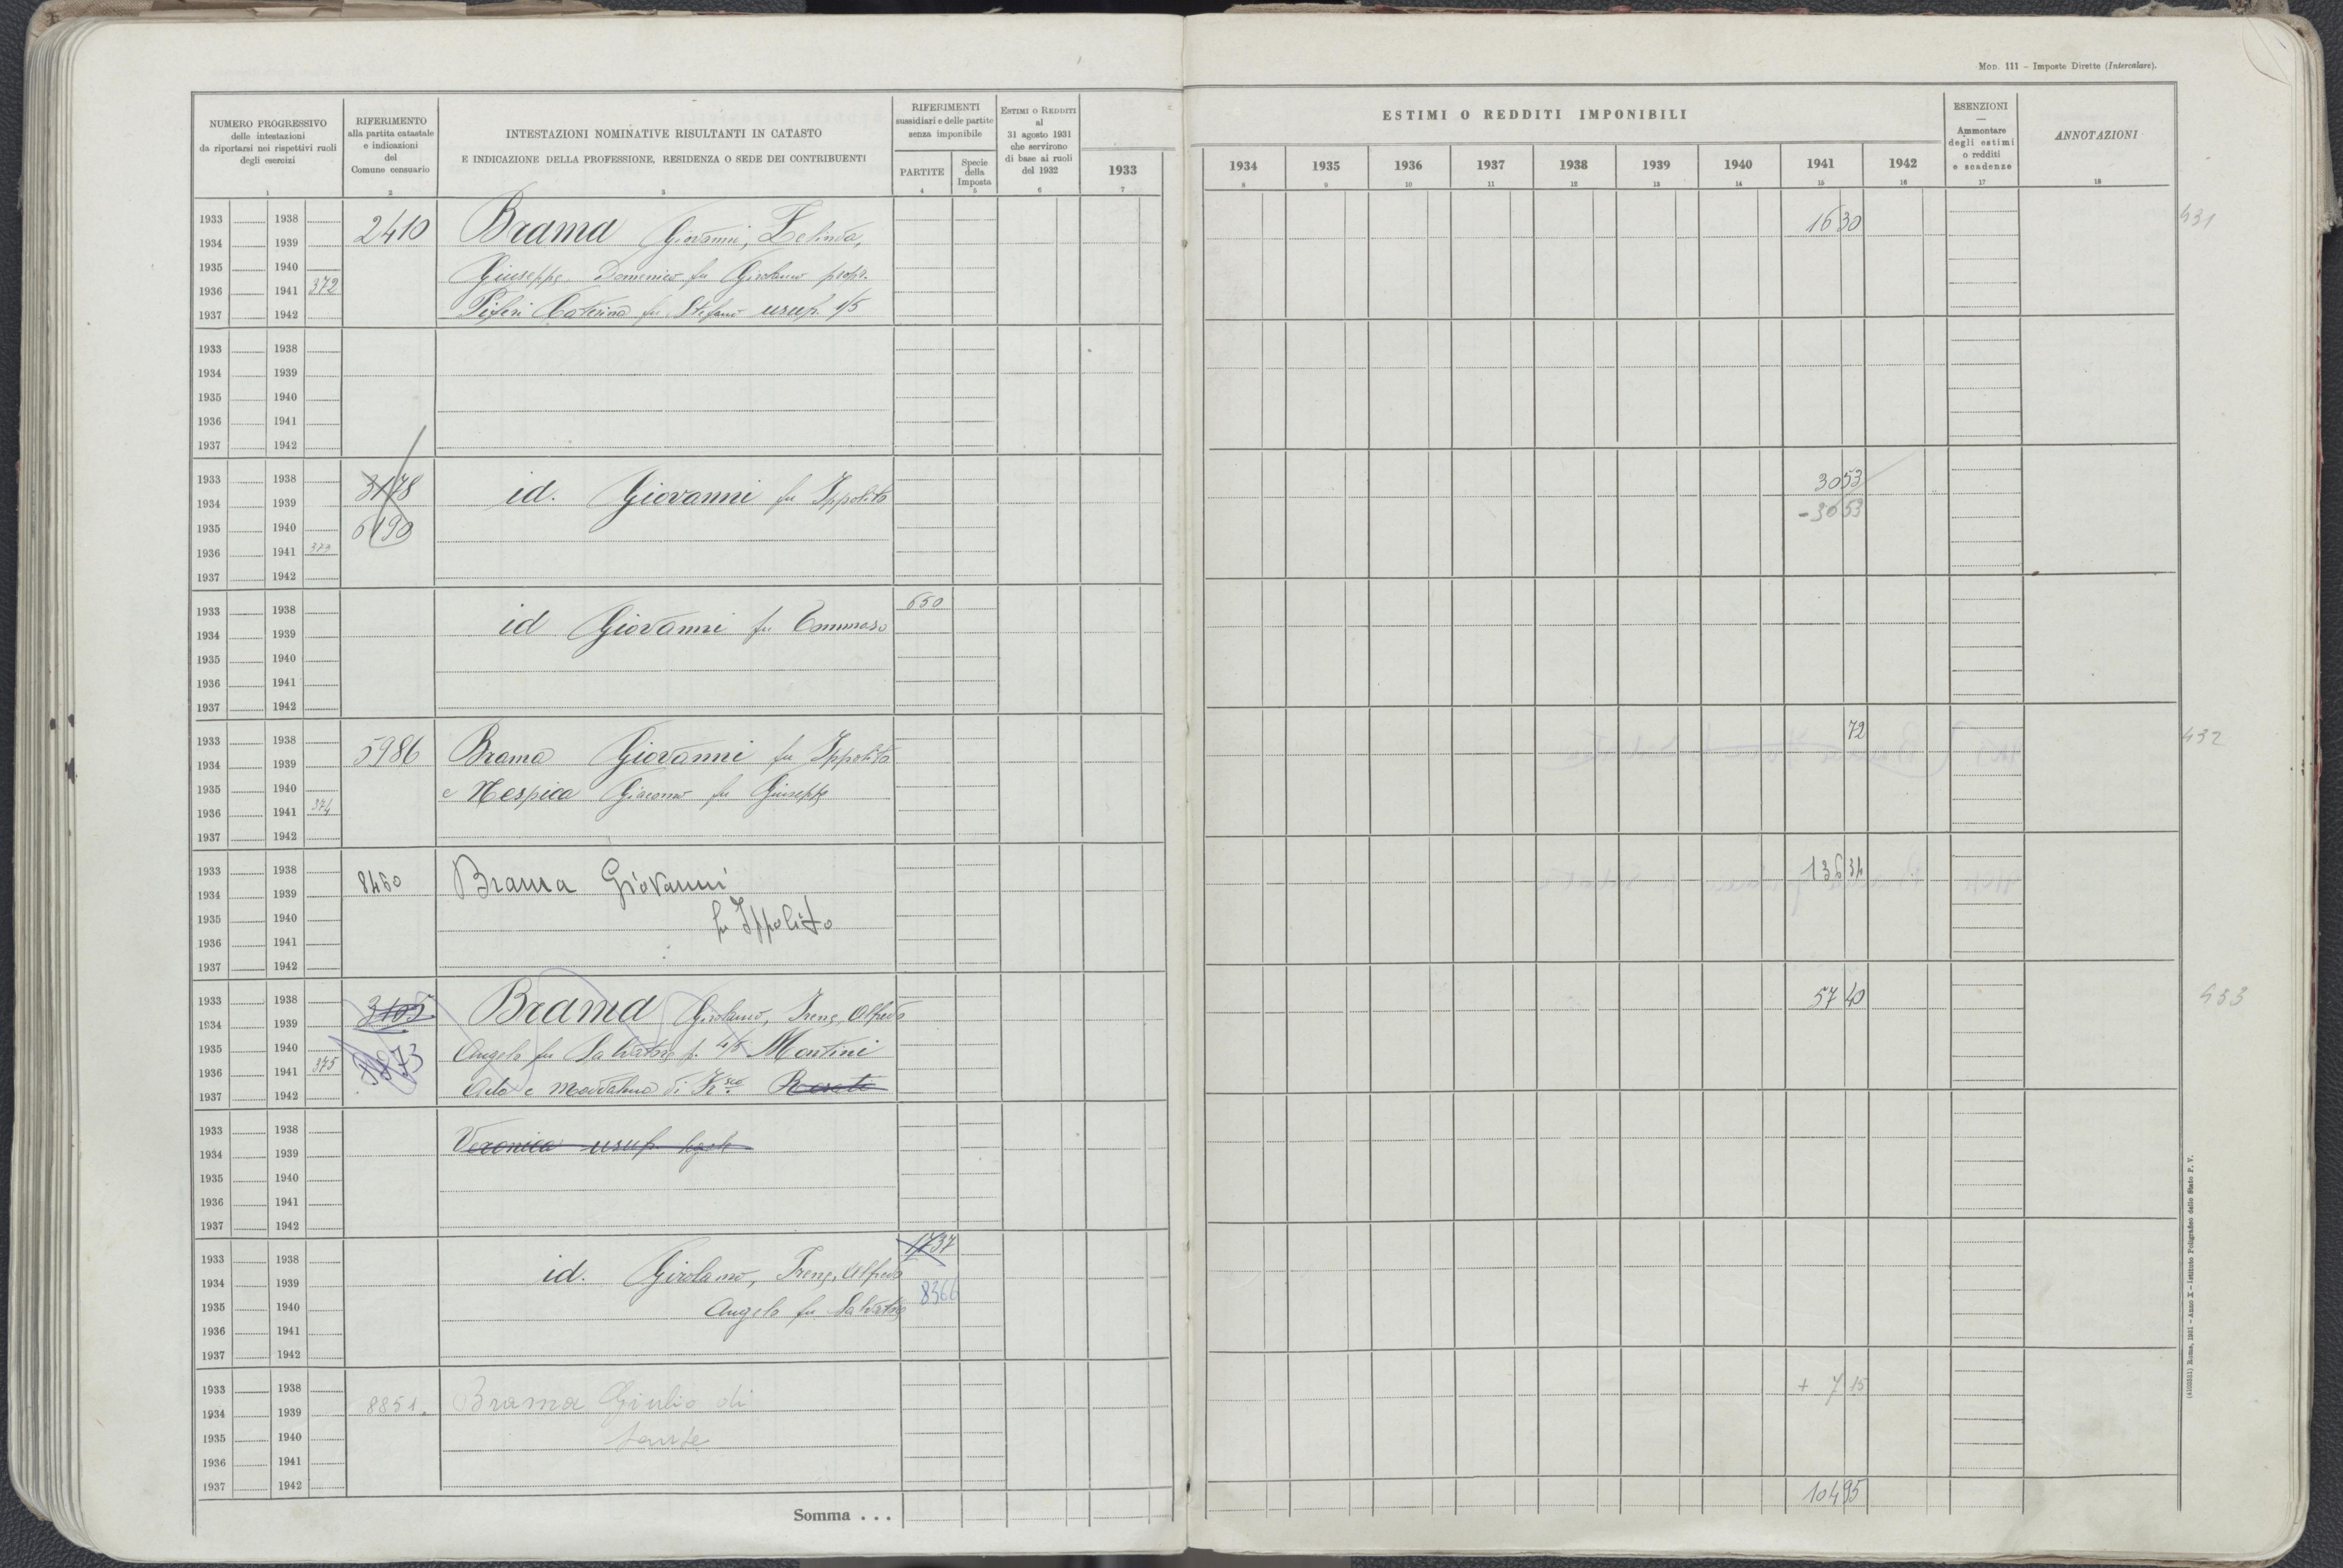 Mod. 111 – Imposte Dirette (Intercalare).
NUMERO PROGRESSIVO
delle intestazioni
da riportarsi nei rispettivi ruoli
degli esercizi
1
RIFERIMENTO
alla partita catastale
e indicazioni
del
Comune censuario
2
INTESTAZIONI NOMINATIVE RISULTANTI IN CATASTO
E INDICAZIONE DELLA PROFESSIONE, RESIDENZA O SEDE DEI CONTRIBUENTI
3
RIFERIMENTI
sussidiari e delle partite
senza imponibile
PARTITE
4
Specie
della
Imposta
5
ESTIMI O REDDITI
al
31 agosto 1931
che servirono
di base ai ruoli
del 1932
6
1933
7
ESTIMI O REDDITI IMPONIBILI
1934 1935 1936 1937 1938 1939 1940 1941 1942
8 9 10 11 12 13 14 15 16
ESENZIONI
—
Ammontare
degli estimi
o redditi
e scadenze
17
ANNOTAZIONI
18
1933 1938 2410 Brama Giovanni, Zelinda, 1630 431
1934 1939
1935 1940 Giuseppe, Domenico fu Girolamo propr.
1936 1941 372
1937 1942 Piferi Caterina fu Stefano usuf. 1/5
1933 1938
1934 1939
1935 1940
1936 1941
1937 1942
1933 1938 3178 id. Giovanni fu Ippolito 3053
1934 1939 -3053
1935 1940 6190
1936 1941 373
1937 1942
1933 1938 650
1934 1939 id Giovanni fu Tommaso
1935 1940
1936 1941
1937 1942
1933 1938 5986 Brama Giovanni fu Ippolito 72 432
1934 1939
1935 1940 e Nespica Giacomo fu Giuseppe
1936 1941 374
1937 1942
1933 1938 8460 Brama Giovanni 13634
1934 1939
1935 1940 fu Ippolito
1936 1941
1937 1942
1933 1938 3105 Brama Girolamo, Irene, Alfredo 5740 433
1934 1939
1935 1940 Angelo fu Salvatore p. 4/5 Montini
1936 1941 375
1937 1942 e Maddalena di
1933 1938
1934 1939 Veronica usuf.
1935 1940
1936 1941
1937 1942
1737
1933 1938 id. Girolamo, Irene, Alfredo
1934 1939 8366
1935 1940 Angelo fu Salvatore
1936 1941
1937 1942
1933 1938 8851. Brama Giulio di + 715
1934 1939
1935 1940 Sante
1936 1941
1937 1942
Somma . . . 10495
(4100331) Roma, 1931 – Anno X – Istituto Poligrafico dello Stato P. V.